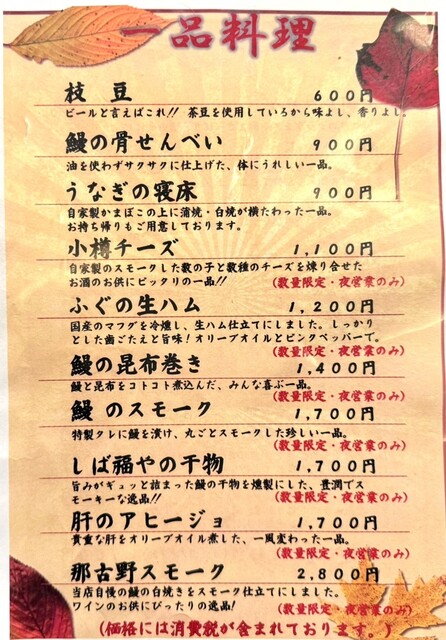 一品料理
枝 豆 600円
ビールと言えばこれ!! 茶豆を使用しているから味よし、香りよし。
鰻の骨せんべい 900円
油を使わずサクサクに仕上げた、体にうれしい一品。
うなぎの寝床 900円
自家製かまぼこの上に蒲焼・白焼が横たわった一品。
お持ち帰りもご用意しております。
小樽チーズ 1,100円
自家製のスモークした数の子と数種のチーズを煉り合せた
お酒のお供にピッタリの一品!! (数量限定・夜営業のみ)
ふぐの生ハム 1,200円
国産のマフグを冷燻し、生ハム仕立てにしました。しっかり
とした歯ごたえと旨味!オリーブオイルとピンクペッパーで。
(数量限定・夜営業のみ)
鰻の昆布巻き 1,400円
鰻と昆布をコトコト煮込んだ、みんな喜ぶ一品。
(数量限定・夜営業のみ)
鰻 のスモーク 1,700円
特製タレに鰻を漬け、丸ごとスモークした珍しい一品。
(数量限定・夜営業のみ)
しば福やの干物 1,700円
旨みがギュッと詰まった鰻の干物を燻製にした、豊潤でス
モーキーな逸品!! (数量限定・夜営業のみ)
肝のアヒージョ 1,700円
貴重な肝をオリーブオイル煮した、一風変わった一品。
(数量限定・夜営業のみ)
那古野スモーク 2,800円
当店自慢の鰻の白焼きをスモーク仕立てにしました。
ワインのお供にぴったりの逸品! (数量限定・夜営業のみ)
(価格には消費税が含まれております )